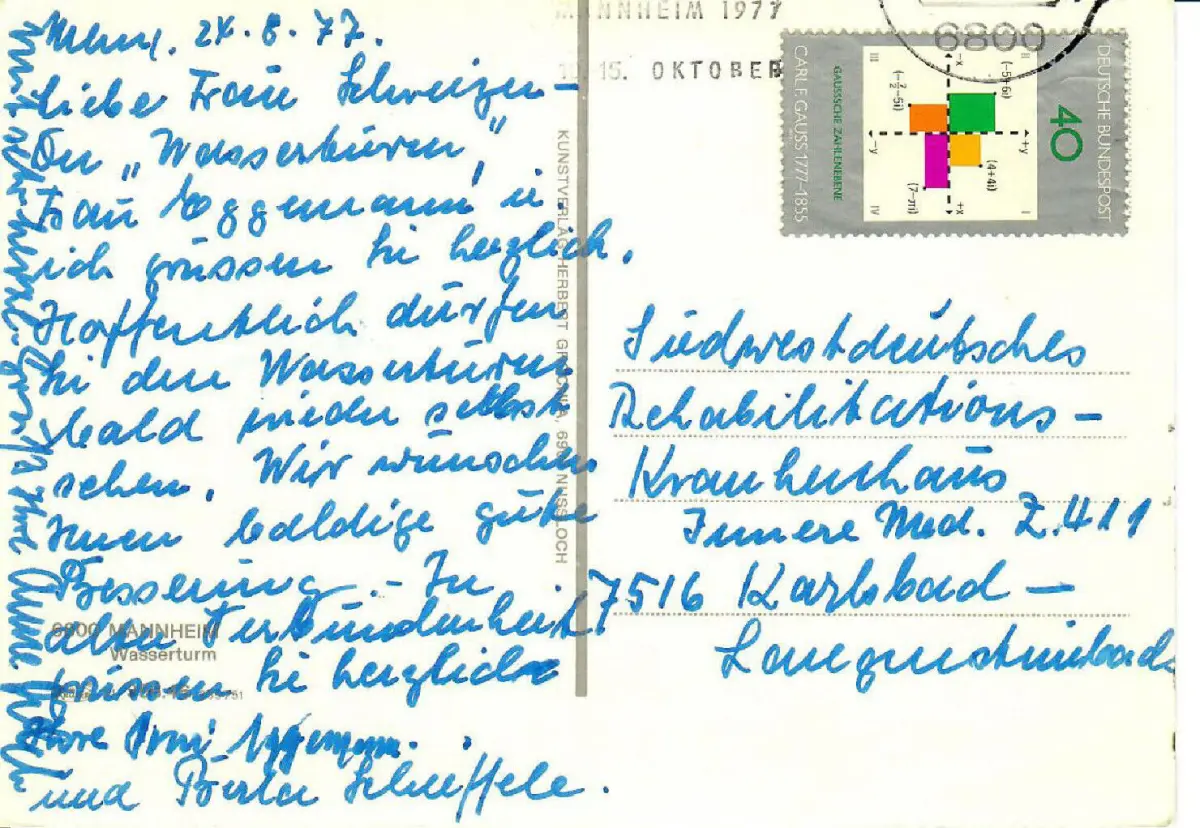 24.8.77.
Liebe Frau Schweizer –
Im „Wasserturm"
Frau Eggemann u.
ich grüssen Sie herzlich.
Hoffentlich dürfen
Sie den Wasserturm
bald wieder selbst
sehen. Wir wünschen
Ihnen baldige gute
Besserung. – In
alter Verbundenheit
grüssen Sie herzlich
Ihre Irmi Eggemann.
und Berta Scheffele.
6800 MANNHEIM
Wasserturm
KUNSTVERLAG HERBERT NUSSLOCH
MANNHEIM 1977
15. OKTOBER
6800
DEUTSCHE BUNDESPOST
40
I
II
III
IV
+y
-y
+x
-x
(-5+6i)
(4+4i)
(7-7i)
(-7/2-5i)
GAUSSSCHE ZAHLENEBENE
CARL F. GAUSS 1777–1855
Südwestdeutsches
Rehabilitations –
Krankenhaus
Innere Med. Z.411
7516 Karlsbad –
Langensteinbach